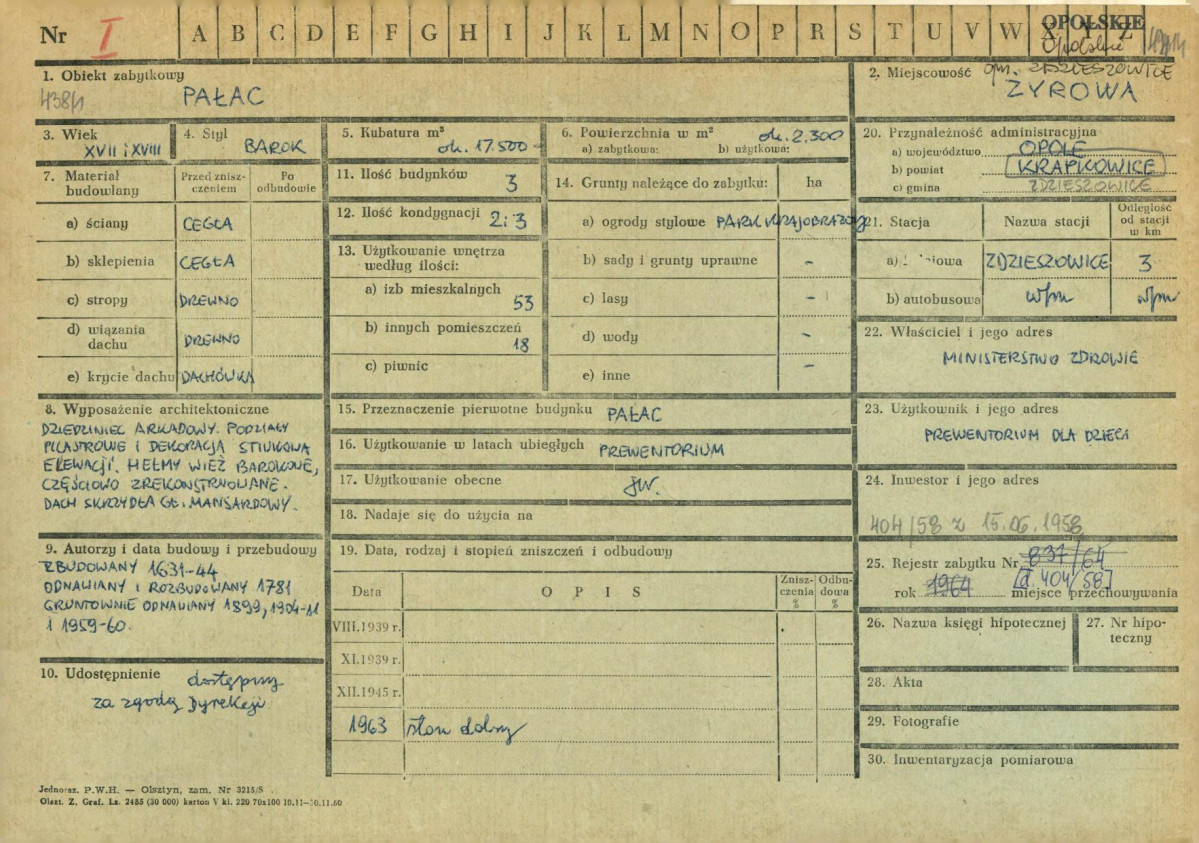 Nr I A B C D E F G H I J K L M N O P R S T U V W X Y Z
OPOLSKIE
Opolskie
1. Obiekt zabytkowy
438/1
PAŁAC
2. Miejscowość gm. ZDZIESZOWICE
ŻYROWA
3. Wiek
XVII i XVIII
4. Styl
BAROK
5. Kubatura m³
ok. 17.500
6. Powierzchnia w m² ok. 2.300
a) zabytkowa: b) użytkowa:
7. Materiał budowlany
Przed zniszczeniem
Po odbudowie
a) ściany CEGŁA
b) sklepienia CEGŁA
c) stropy DREWNO
d) wiązania dachu DREWNO
e) krycie dachu DACHÓWKA
8. Wyposażenie architektoniczne
DZIEDZINIEC ARKADOWY. PODZIAŁY
PILASTROWE I DEKORACJA STIUKOWA
ELEWACJI. HEŁMY WIEŻ BAROKOWE,
CZĘŚCIOWO ZREKONSTRUOWANE.
DACH SKRZYDŁA GŁ. MANSARDOWY.
9. Autorzy i data budowy i przebudowy
ZBUDOWANY 1631-44
ODNAWIANY I ROZBUDOWANY 1781
GRUNTOWNIE ODNAWIANY 1899, 1904-11
I 1959-60.
10. Udostępnienie dostępny
za zgodą Dyrekcji
11. Ilość budynków 3
12. Ilość kondygnacji 2i3
13. Użytkowanie wnętrza
według ilości:
a) izb mieszkalnych
53
b) innych pomieszczeń
18
c) piwnic
14. Grunty należące do zabytku: ha
a) ogrody stylowe PARK KRAJOBRAZOWY
b) sady i grunty uprawne –
c) lasy –
d) wody –
e) inne –
15. Przeznaczenie pierwotne budynku PAŁAC
16. Użytkowanie w latach ubiegłych PREWENTORIUM
17. Użytkowanie obecne jw.
18. Nadaje się do użycia na
19. Data, rodzaj i stopień zniszczeń i odbudowy
Data
O P I S
Zniszczenia %
Odbudowa %
VIII.1939 r.
XI.1939 r.
XII.1945 r.
1963 stan dobry
20. Przynależność administracyjna
a) województwo OPOLE
b) powiat KRAPKOWICE
c) gmina ZDZIESZOWICE
21. Stacja
Nazwa stacji
Odległość
od stacji
w km
ZDZIESZOWICE 3
b) autobusowa w/m w/m
22. Właściciel i jego adres
MINISTERSTWO ZDROWIE
23. Użytkownik i jego adres
PREWENTORIUM DLA DZIECI
24. Inwestor i jego adres
404/58 z 15.06.1958
25. Rejestr zabytku Nr 837/64
[d. 404/58]
rok 1964 miejsce przechowywania
26. Nazwa księgi hipotecznej
27. Nr hipoteczny
28. Akta
29. Fotografie
30. Inwentaryzacja pomiarowa
Jednoraz. P.W.H. — Olsztyn, zam. Nr 3215/S
Olszt. Z. Graf. Lz. 2485 (30 000) karton V kl. 220 70x100 10.11—30.11.60